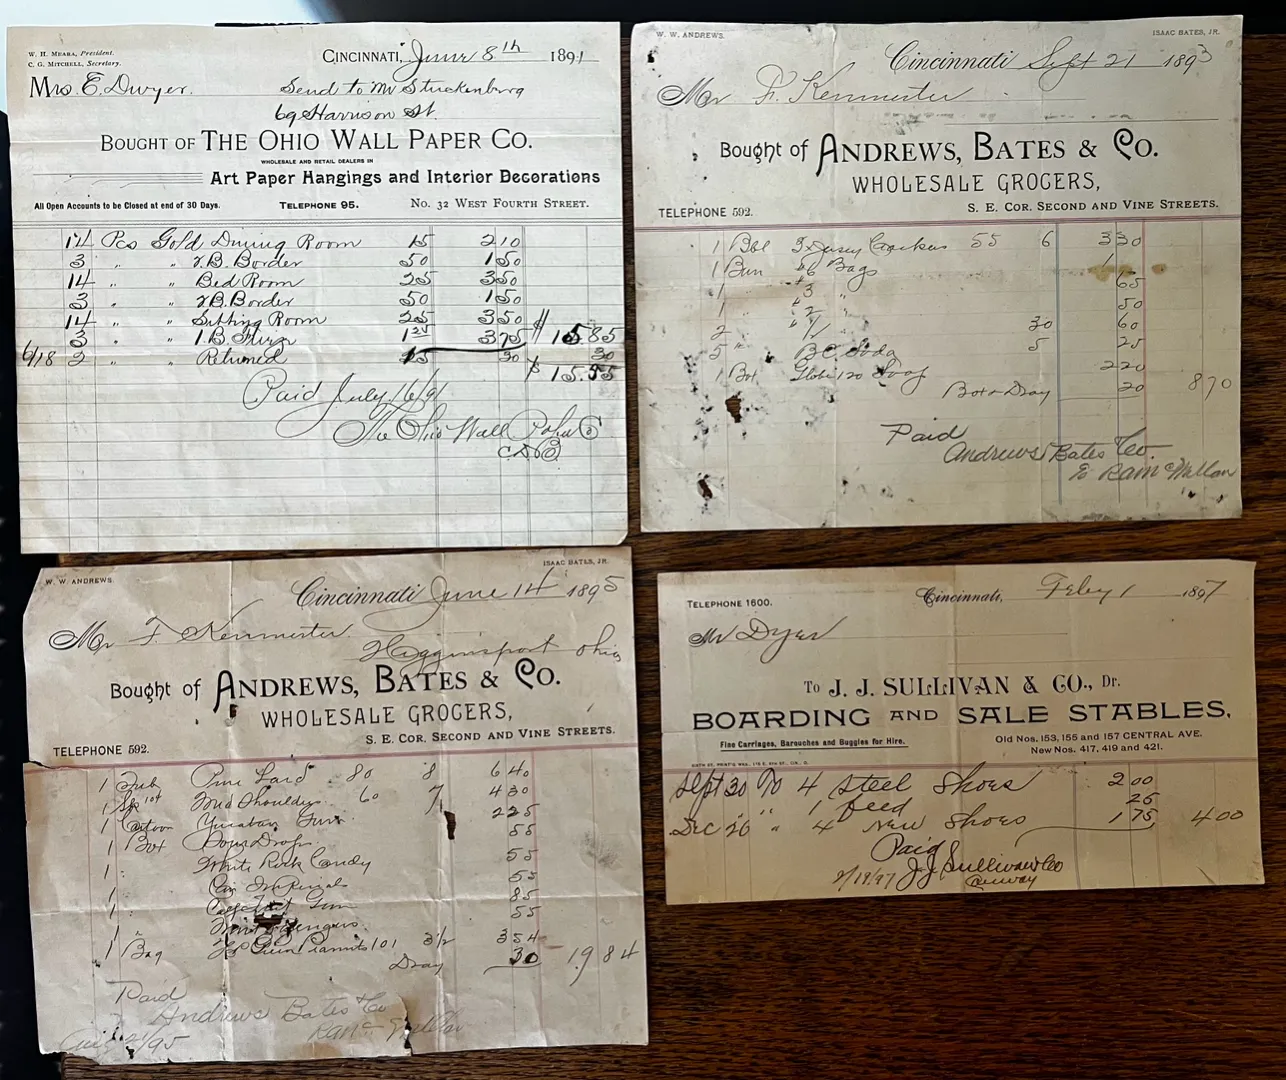 W. H. Meara, President.
C. G. Mitchell, Secretary.
Cincinnati, June 8th 1891
Mrs. E. Dwyer. Send to Mr Stuckenburg
69 Harrison St.
Bought of The Ohio Wall Paper Co.
WHOLESALE AND RETAIL DEALERS IN
Art Paper Hangings and Interior Decorations
All Open Accounts to be Closed at end of 30 Days. TELEPHONE 95. No. 32 West Fourth Street.
14 Pcs Gold Dining Room 15 210
3 " " Border 50 150
14 " " Bed Room 25 350
3 " " Border 50 150
14 " " Sitting Room 25 350
3 " " 1 25 375 $ 15.85
6/18 2 " " Returned 15 30 30
$ 15.55
Paid July 16/91
The Ohio Wall Paper Co
W. W. ANDREWS. ISAAC BATES, JR.
Cincinnati Sept 21 1893
Mr F. Kenmeister
Bought of Andrews, Bates & Co.
WHOLESALE GROCERS,
TELEPHONE 592. S. E. Cor. Second and Vine Streets.
1 Bbl Crackers 55 6 330
1 Bun 6 Bags 1
1 " 3 " 65
1 " 2 " 50
2 " 30 60
5 " B C Soda 5 25
1 Box Globe 120 Soap 220
Box & Dray 20 870
Paid
Andrews Bates & Co.
W. W. ANDREWS ISAAC BATES, JR.
Cincinnati June 14 1895
Mr F. Kenmeister
Higginsport Ohio
Bought of Andrews, Bates & Co.
WHOLESALE GROCERS,
S. E. Cor. Second and Vine Streets.
TELEPHONE 592.
1 Tub Pure Lard 80 8 640
1 Shoulders 60 7 430
1 Cartoon Yucatan Gum 225
1 Box Drops 55
1 " White Rock Candy 55
1 " 55
1 " Gum 85
1 " 55
1 Bag Green Peanuts 101 3½ 354
Dray 30 1984
Paid
Andrews Bates & Co
Telephone 1600. Cincinnati, Feby 1 1897
Mr Dyer
To J. J. SULLIVAN & CO., Dr.
BOARDING AND SALE STABLES.
Fine Carriages, Barouches and Buggies for Hire.
Old Nos. 153, 155 and 157 CENTRAL AVE.
New Nos. 417, 419 and 421.
Sept 30 To 4 Steel Shoes 2 00
" " 1 feed 25
Dec 26 " 4 New Shoes 1 75 4 00
Paid
2/19/97 J J Sullivan & Co